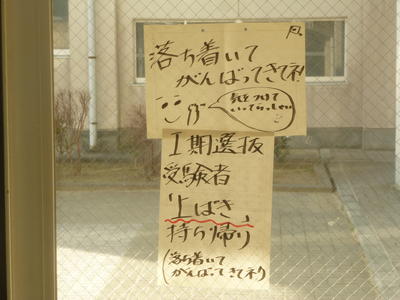 落ち着いて
がんばってきてネ!
気をつけて
いってらっしゃい
I期選抜
受験者
「上ばき」
持ち帰り
(落ち着いて
がんばってきてネ!)